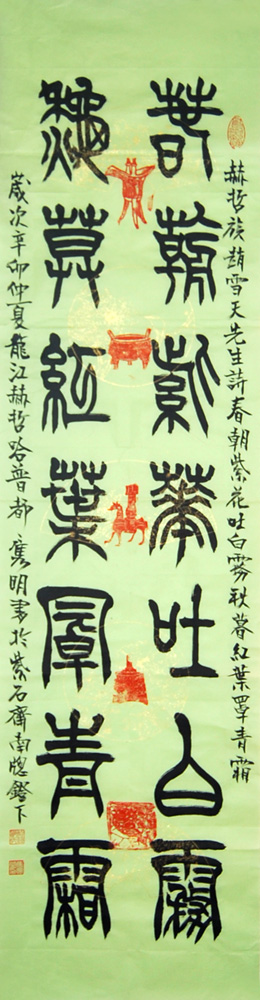 赫哲族趙雪天先生詩春朝紫花吐白霧秋暮紅葉罩青霜
春朝紫華吐白霧
秋莫紅葉罩青霜
歲次辛卯仲夏龍江赫哲哈普都雋明書於紫石齋南牕鐙下